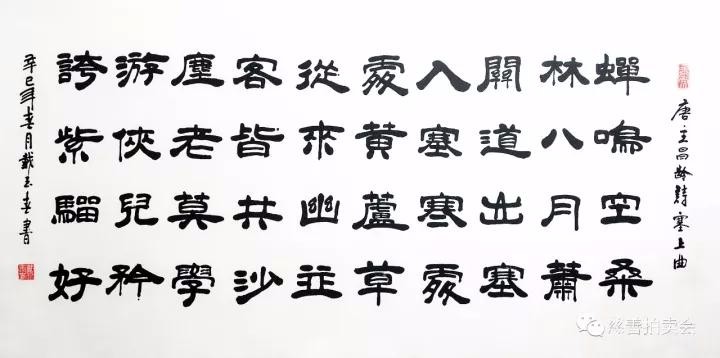 唐王昌齡詩塞上曲
蟬鳴空桑
林八月蕭
關道出塞
入塞寒處
處黃蘆草
從來幽並
客皆共沙
塵老莫學
游俠兒矜
誇紫騮好
辛巳年春月戴志春書
慈善拍卖会